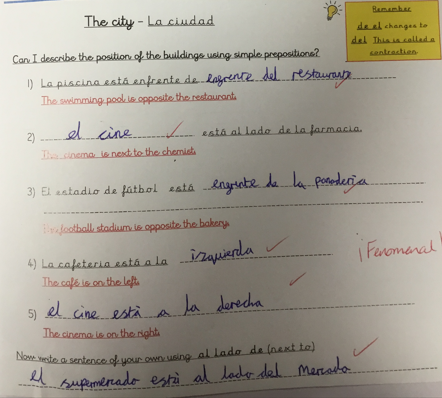 The city - La ciudad
Remember
de el changes to
del This is called a
contraction
Can I describe the position of the buildings using simple prepositions?
1) La piscina está enfrente de engrente del restaurante
The swimming pool is opposite the restaurant.
2) el cine está al lado de la farmacia.
The cinema is next to the chemist.
3) El estadio de fútbol está engrinte de la panadería
The football stadium is opposite the bakery.
4) La cafetería está a la izquierda
¡Fenomenal!
The café is on the left.
5) el cine està a la derecha
The cinema is on the right.
Now write a sentence of your own using al lado de (next to)
el supermercado está al lado del Mercado